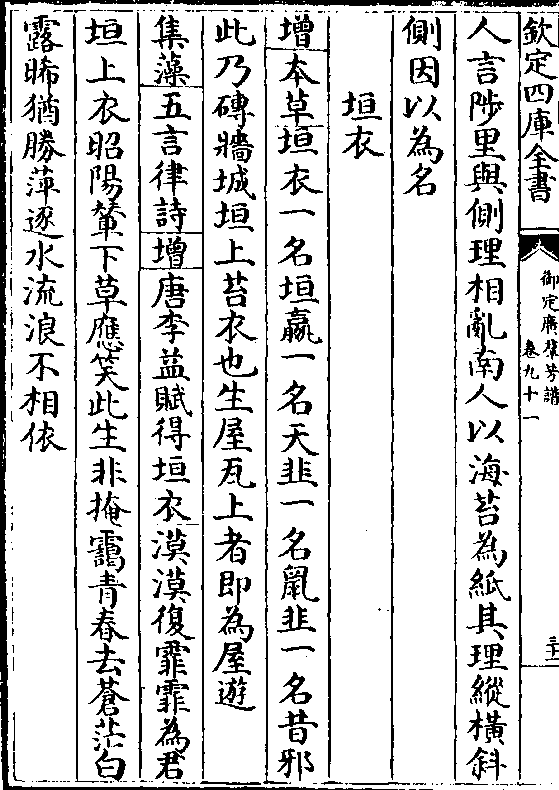 欽定四庫全書
御定廣羣芳譜
卷九十一
三十一
人言陟里與側理相亂南人以海苔為紙其理縱橫斜
側因以為名
垣衣
增本草垣衣一名垣嬴一名天韭一名鼠韭一名昔邪
此乃磚牆城垣上苔衣也生屋瓦上者即為屋遊
集藻五言律詩增唐李益賦得垣衣漠漠復霏霏為君
垣上衣昭陽輦下草應笑此生非掩靄青春去蒼茫白
露晞猶勝萍逐水流浪不相依